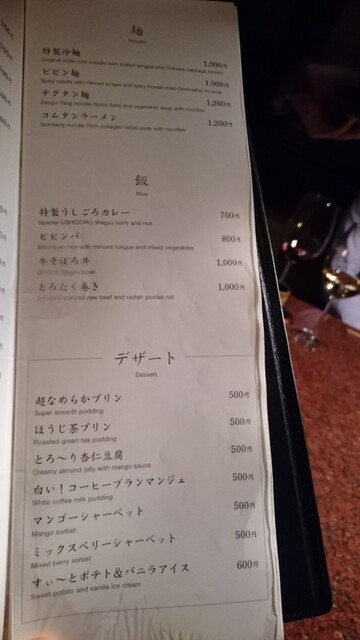 麺
Noodle
特製冷麺 1,000円
Original style cold noodle with boiled tongue and Chinese cabbage kimchi
ビビン麺 1,000円
Spicy noodle with minced tongue and spicy
テグタン麺 1,200円
Daegu Tang noodle-Spicy beef and vegetable soup with noodles
コムタンラーメン 1,200円
Gomtang noodle-Rich collagen oxtail soup with noodles
飯
Rice
特製うしごろカレー 700円
Special USHIGORO Wagyu curry and rice
ビビンバ 800円
with minced tongue and mixed vegetables
牛そぼろ丼 1,000円
Wagyu bowl
とろたく巻き 1,000円
raw beef and radish pickles roll
デザート
Dessert
超なめらかプリン 500円
Super smooth pudding
ほうじ茶プリン 500円
Roasted green tea pudding
とろ〜り杏仁豆腐 500円
Creamy almond jelly with mango sauce
白い!コーヒーブランマンジェ 500円
White coffee milk pudding
マンゴーシャーベット 500円
Mango sorbet
ミックスベリーシャーベット 500円
Mixed berry sorbet
すぃ〜とポテト&バニラアイス 600円
Sweet potato and vanilla ice cream